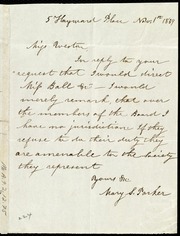 5 Hayward Place Nov 1st 1837
Miss Weston
In reply to your
request that I would direct
Miss Ball &c — I would
merely remark that over
the members of the Board I
have no jurisdiction. If they
refuse to do their duty they
are amenable to the Society
they represent
Yours &c
Mary S. Parker